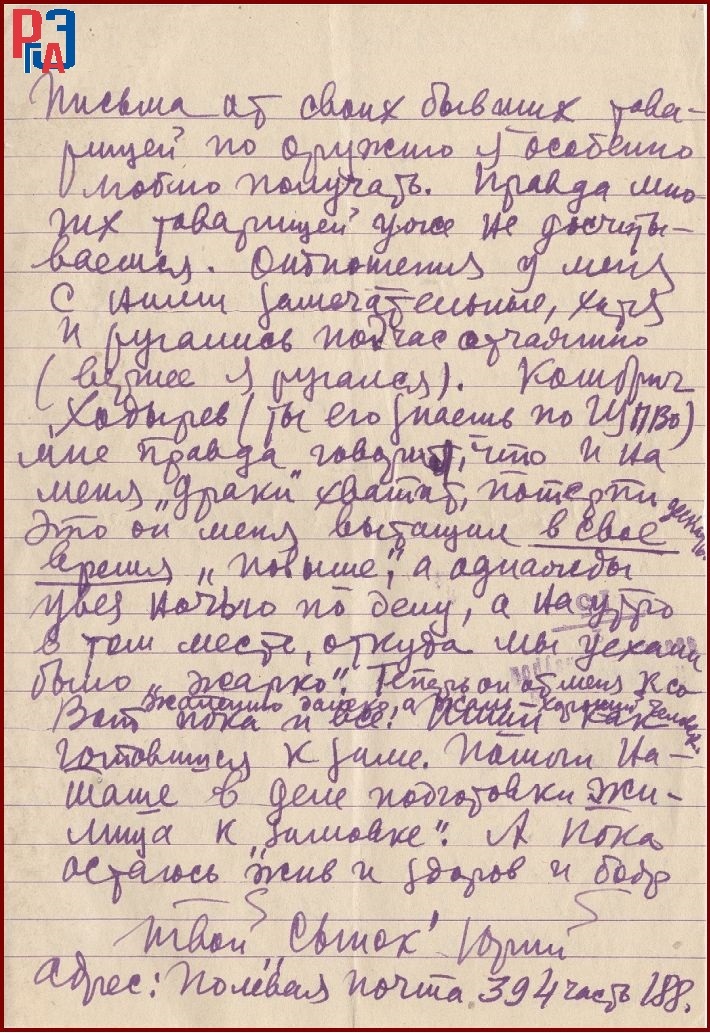 РГАЭ
Письма от своих бывших това-
рищей по оружию я особенно
люблю получать. Правда мно-
гих товарищей уже не досчиты-
ваешься. Отношения у меня
с ними замечательные, хотя
и ругались подчас отчаянно
(вернее я ругался). Комбриг
Ходырев (ты его знаешь по
мне правда говорит, что и на
меня „драки" хватит, потерпи
Это он меня вытащил в свое
время „повыше", а однажды
увез ночью по делу, а на утро
в том месте, откуда мы уехали
было „жарко". Теперь он от меня к со
жалению далеко, а жаль хороший человек.
Вот пока и все! Пиши как
готовишься к зиме. Помочь На-
таше в деле подготовки жи-
лища к „зимовке". А пока
остаюсь жив и здоров и бодр
Твой „Сынок" Юрий
Адрес: Полевая почта 394 часть 188.